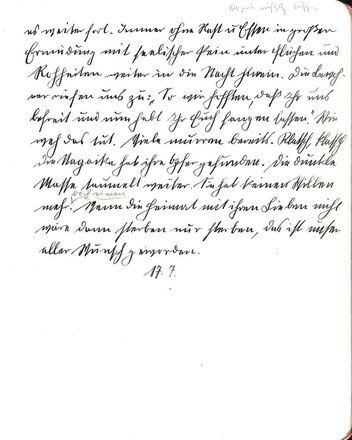 es weiter fort. Immer ohne Rast u Essen in großer
Ermüdung mit seelischer Pein unter Flüchen und
Rohheiten weiter in die Nacht hinein. Die
riefen uns zu: "So wir hofften, daß Ihr uns
befreit und nun habt Ihr Euch fangen lassen". Wie
weh das tut. Viele murren bereits. Klatsch, klatsch
die Nagaika hat ihre Opfer gefunden. Die dunkle
Masse taumelt weiter. Sie hat keinen Willen
mehr. Wenn die Heimat mit ihren Lieben nicht
wäre dann sterben nur sterben, das ist unser
aller Wunsch geworden.
17. 7.